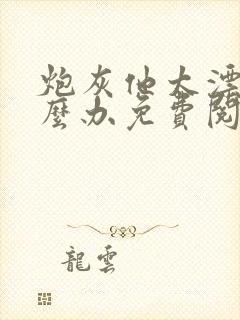 炮灰他太漂
麼办免費閱
龍雲